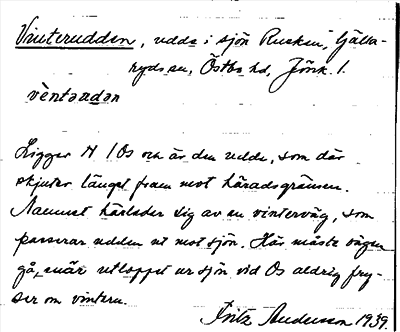 Vinterudden, udde i sjön Rusken, Gälla-
ryds sn, Östbo hd, Jönk. l.
vèntəɹdən
Ligger N 1 Os och är den udde, som där
skjuter längst fram mot häradsgränsen.
Namnet härleder sig av en vinterväg, som
passerar udden ut mot sjön. Här måste vägen
gå, enär utloppet ur sjön vid Os aldrig fry-
ser om vintern.
Fritz Anderson 1939.